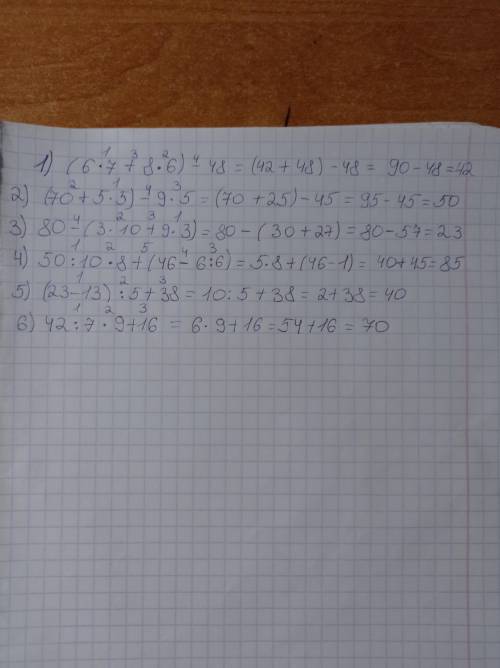 1 3 2 4
1) (6·7+8·6) - 48 = (42+48) - 48 = 90-48=42
2 1 4 3
2) (70+5·5) - 9·5 = (70+25) - 45 = 95-45=50
4 2 3 1
3) 80-(3·10+9·3) = 80-(30+27) = 80-57=23
1 2 5 4 3
4) 50:10·8+(46-6:6) = 5·8+(46-1) = 40+45=85
1 2 3
5) (23-13):5+38 = 10:5+38 = 2+38=40
1 2 3
6) 42:7·9+16 = 6·9+16=54+16=70